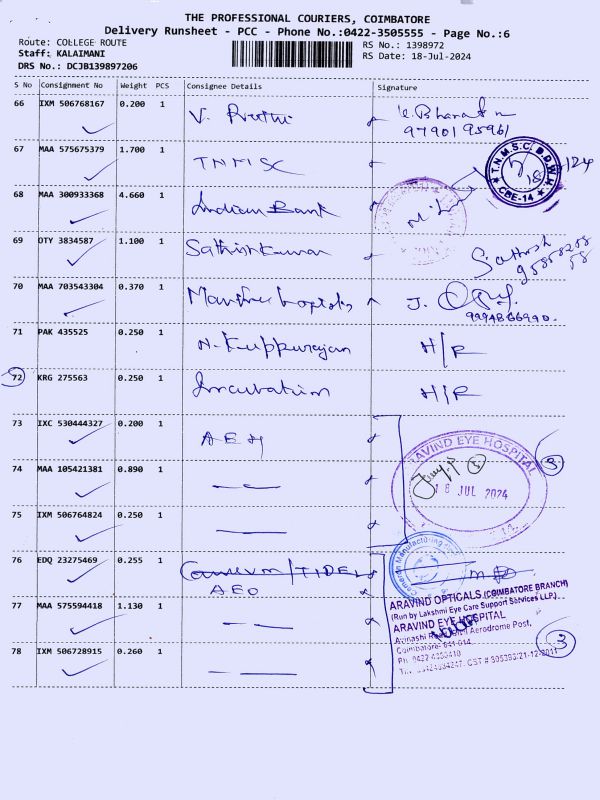 THE PROFESSIONAL COURIERS, COIMBATORE
Delivery Runsheet - PCC - Phone No.:0422-3505555 - Page No.:6
Route: COLLEGE ROUTE
Staff: KALAIMANI
DRS No.: DCJB139897206
RS No.: 1398972
RS Date: 18-Jul-2024
S No Consignment No Weight PCS Consignee Details Signature
66 IXM 506768167 0.200 1
97901 95961
67 MAA 575675379 1.700 1
T.N.M.S.C. D.D.W.H. CBE-14
68 MAA 300933368 4.660 1 Indian Bank
69 OTY 3834587 1.100 1 Sathishkumar
Sathish
70 MAA 703543304 0.370 1
9994866990.
71 PAK 435525 0.250 1 N. Kuppurajan H/R
72 KRG 275563 0.250 1 Incubation H/R
73 IXC 530444327 0.200 1 AEH
ARAVIND EYE HOSPITAL
3
74 MAA 105421381 0.890 1
18 JUL 2024
75 IXM 506764824 0.250 1
76 EDQ 23275469 0.255 1
AEO
77 MAA 575594418 1.130 1
ARAVIND OPTICALS (COIMBATORE BRANCH)
(Run by Lakshmi Eye Care Support Services LLP.)
ARAVIND EYE HOSPITAL
Avinashi Road, Civil Aerodrome Post,
Coimbatore- 641 014
3
78 IXM 506728915 0.260 1